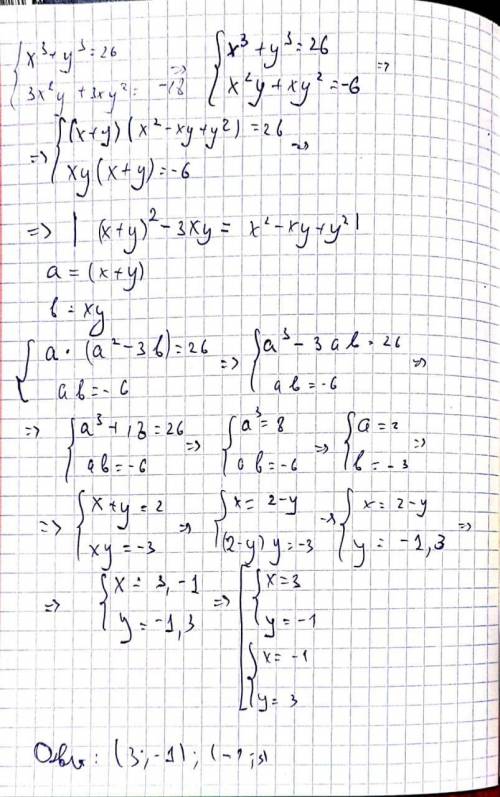 { x³+y³=26 3x²y+3xy²=-18 => { x³+y³=26 x²y+xy²=-6 =>
=> { (x+y)(x²-xy+y²)=26 xy(x+y)=-6 =>
=> | (x+y)²-3xy = x²-xy+y² |
a = (x+y)
b = xy
{ a·(a²-3b)=26 ab=-6 => { a³-3ab=26 ab=-6 =>
=> { a³+18=26 ab=-6 => { a³=8 ab=-6 => { a=2 b=-3 =>
=> { x+y=2 xy=-3 => { x=2-y (2-y)y=-3 => { x=2-y y=-1,3 =>
=> { x=3,-1 y=-1,3 => [ { x=3 y=-1 { x=-1 y=3
Ответ: (3;-1); (-1;3)